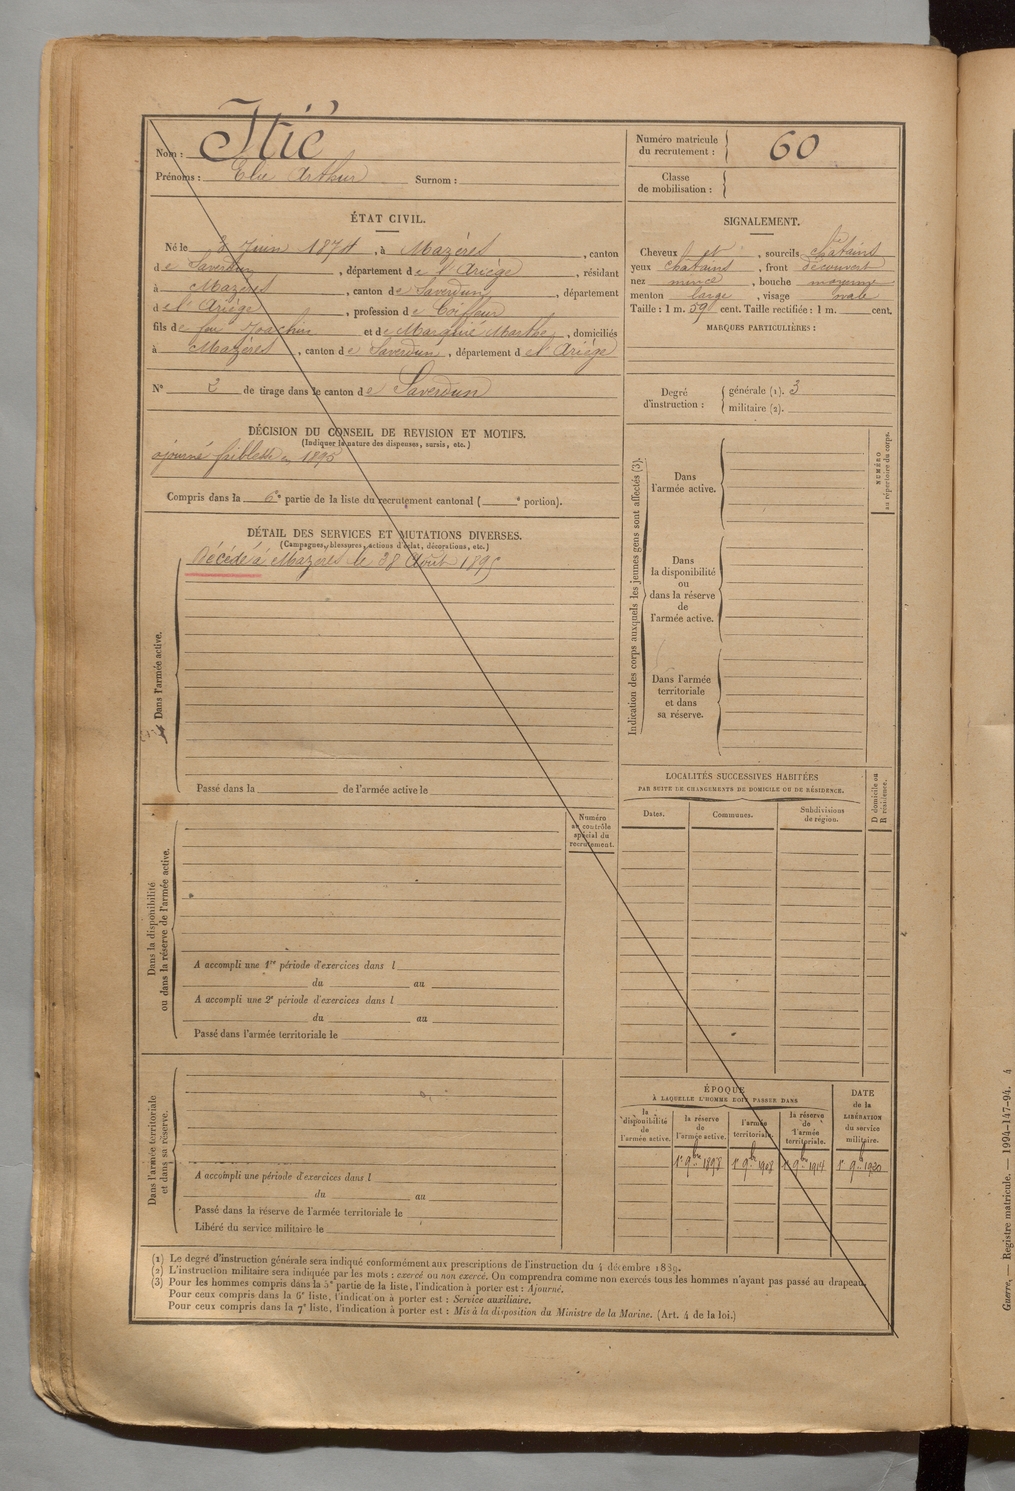 Nom : Itié
Prénoms : Elie Arthur Surnom :
Numéro matricule du recrutement : 60
Classe de mobilisation :
ÉTAT CIVIL.
Né le 3 Juin 1874, à Mazères, canton
de Saverdun, département de l'Ariège, résidant
à Mazères, canton de Saverdun, département
de l'Ariège, profession de Coiffeur
fils de feu Joachim et de Marquié Marthe, domiciliés
à Mazères, canton de Saverdun, département de l'Ariège
N° 2 de tirage dans le canton de Saverdun
DÉCISION DU CONSEIL DE REVISION ET MOTIFS.
(Indiquer la nature des dispenses, sursis, etc.)
ajourné faiblesse en 1895
Compris dans la 6e partie de la liste du recrutement cantonal ( e portion).
DÉTAIL DES SERVICES ET MUTATIONS DIVERSES.
(Campagnes, blessures, actions d'éclat, décorations, etc.)
Décédé à Mazères le 28 Août 1895
Dans l'armée active.
Passé dans la de l'armée active le
Numéro au contrôle spécial du recrutement.
Dans la disponibilité
ou dans la réserve de l'armée active.
A accompli une 1re période d'exercices dans l
du au
A accompli une 2e période d'exercices dans l
du au
Passé dans l'armée territoriale le
Dans l'armée territoriale
et dans sa réserve.
A accompli une période d'exercices dans l
du au
Passé dans la réserve de l'armée territoriale le
Libéré du service militaire le
SIGNALEMENT.
Cheveux et, sourcils châtains
yeux châtains, front découvert
nez mince, bouche moyenne
menton large, visage ovale
Taille : 1 m. 59 cent. Taille rectifiée : 1 m. cent.
MARQUES PARTICULIÈRES :
Degré d'instruction : générale (1). 3
militaire (2).
Indication des corps auxquels les jeunes gens sont affectés (3).
NUMÉRO
au répertoire du corps.
Dans
l'armée active.
Dans
la disponibilité
ou
dans la réserve
de
l'armée active.
Dans l'armée
territoriale
et dans
sa réserve.
LOCALITÉS SUCCESSIVES HABITÉES
PAR SUITE DE CHANGEMENTS DE DOMICILE OU DE RÉSIDENCE.
D domicile ou
R résidence.
Dates. Communes. Subdivisions de région.
ÉPOQUE
À LAQUELLE L'HOMME DOIT PASSER DANS
la disponibilité de l'armée active.
la réserve de l'armée active.
l'armée territoriale.
la réserve de l'armée territoriale.
DATE de la LIBÉRATION du service militaire.
1er 9bre 1898 1er 9bre 1908 1er 9bre 1914 1er 9bre 1920
(1) Le degré d'instruction générale sera indiqué conformément aux prescriptions de l'instruction du 4 décembre 1889.
(2) L'instruction militaire sera indiquée par les mots : exercé ou non exercé. On comprendra comme non exercés tous les hommes n'ayant pas passé au drapeau.
(3) Pour les hommes compris dans la 5e partie de la liste, l'indication à porter est : Ajourné.
Pour ceux compris dans la 6e liste, l'indication à porter est : Service auxiliaire.
Pour ceux compris dans la 7e liste, l'indication à porter est : Mis à la disposition du Ministre de la Marine. (Art. 4 de la loi.)
Guerre. — Registre matricule. — 1994-147-94. 4